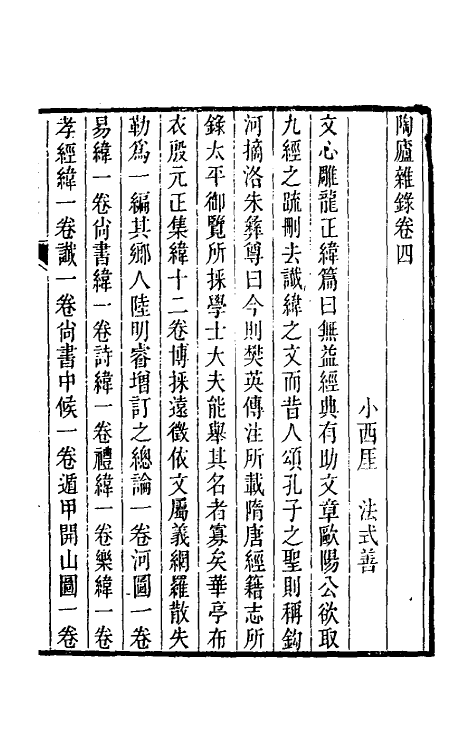 陶廬雜錄卷四
小西厓　法式善
文心雕龍正緯篇曰無益經典有助文章歐陽公欲取
九經之疏刪去讖緯之文而昔人頌孔子之聖則稱鈎
河摘洛朱彝尊曰今則樊英傳注所載隋唐經籍志所
錄太平御覽所採學士大夫能舉其名者寡矣華亭布
衣殷元正集緯十二卷博採遠徵依文屬義網羅散失
勒爲一編其鄉人陸明睿增訂之總論一卷河圖一卷
易緯一卷尙書緯一卷詩緯一卷禮緯一卷樂緯一卷
孝經緯一卷讖一卷尙書中候一卷遁甲開山圖一卷